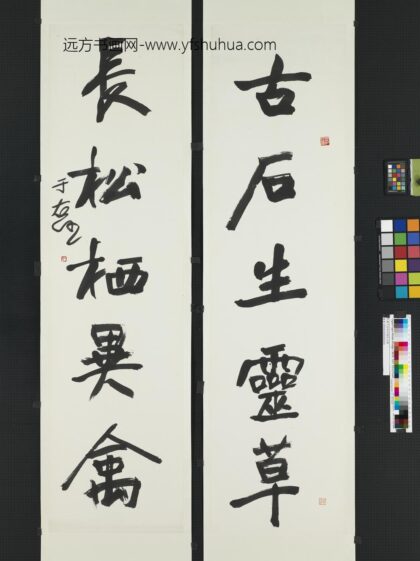 远方书画网-www.yfshuhua.com
古石生靈草
長松栖異禽
于右任